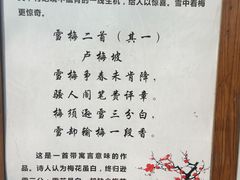 给人以惊喜。雪中看梅
更惊奇。
雪梅二首（其一）
卢梅坡
雪梅争春未肯降，
骚人阁笔费评章。
梅须逊雪三分白，
雪却输梅一段香。
这是一首带寓言意味的作
品。诗人认为梅花虽白，终归逊